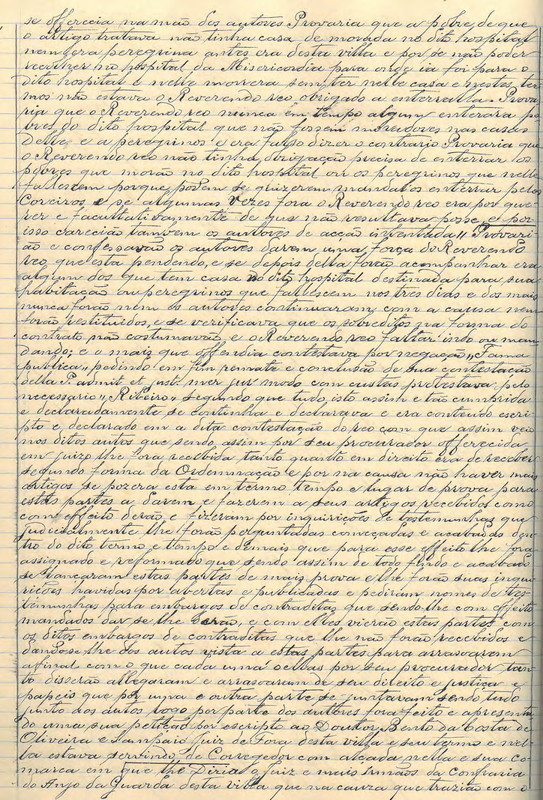 se offerecia na mão dos autores Provaria que a pobre, de que
o artigo tratava não tinha casa de morada no dito hospital
nem era peregrina antes era desta villa e por se não poder
recolher no hospital da Misericordia para onde ia foi para o
dito hospital e nelle morrera sem ter nelle casa e nestes ter
mos não estava o Reverendo reo obrigado a enterralla Prova
ria que o Reverendo reo nunca em tempo algum enterara po
bres do dito hospital que não fossem moradores nas casas
delle, e a peregrinos e era falso dizer o contrario Provaria que
o Reverendo reo não tinha obrigação precisa de enterrar os
pobres que morão no dito hospital ou os peregrinos que nelle
fallescem porque podem se quizerem mandalos enterrar pelos
Coreiros e se algumas vezes fora o Reverendo reo era por que
rer e facultativamente de que não resultava posse e por
isso careciāo tambem os autores de acção intentada Provari
ão e confessavão os autores darem uma força do Reverendo
reo que esta pendendo, e se depois della forão acompanhar era
algum dos que tem casa no dito hospital destinada para sua
habitação ou peregrinos que fallescem nos tres dias e dos mais
nunca forão nem os autores continuaram com a causa nem
forão restituidos, e se verificava que os sobreditos na forma do
contrato não costumavão, e o Reverendo reo faltar into ou man
dança; e o mais que offendia contestava por negação Fama
publica, pedindo em fim remate e conclusão de sua contestação
della P. admit et just. mer. jur modo com custas protestava pelo
necessario Ribeiro segundo que tudo isto assim e tão cumprida
e declaradamente se continha e declarava e era conteudo escri
pto e declarado em a dita contestação do reo com que assim veio
nos ditos autos que sendo assim por seu procurador offerecida
em juizo lhe fora recebida tanto quanto em direito era de receber
segundo forma da Ordennação e por na causa não haver mais
artigos se pozera esta em termo tempo e lugar de prova para
estas partes a darem e fazerem a seus artigos recebidos como
com effeito derão e fizeram por inquirições de testemunhas que
judicialmente lhe forão perguntadas começadas e acabadas den
tro do dito termo e tempo e demais que para esse effeito lhe fora
assignado e reformado que sendo assim de todo findo e acabado
se lançaram estas partes de mais prova e lhe forão suas inqui
rições havidas por abertas e publicadas e pediram nomes de tes
temunhas para embargos de contraditas que sendo-lhe com effeito
mandados dar se lhe derão, e com elles vierão estas partes com
os ditos embargos de contraditas que lhe não forão recebidos e
dandose-lhe dos autos vista a estas partes para arrasoarem
a final com o que cada uma dellas por seu procurador tan
to disserão allegaram e arrasoaram de seu direito e justiça e
papeis que por uma e outra parte se juntaram sendo tudo
junto aos autos logo por parte dos autores fora feito e apresenta
do uma sua petição por escripto ao Doutor Bento da Costa de
Oliveira e Sampaio Juiz de Fora desta villa e seu termo e nel
la estava servindo de Corregedor com alçada nella e sua co
marca em que lhe dizia o juiz e mais Irmãos da confraria
do Anjo da Guarda desta villa que na cauza que trazião com o